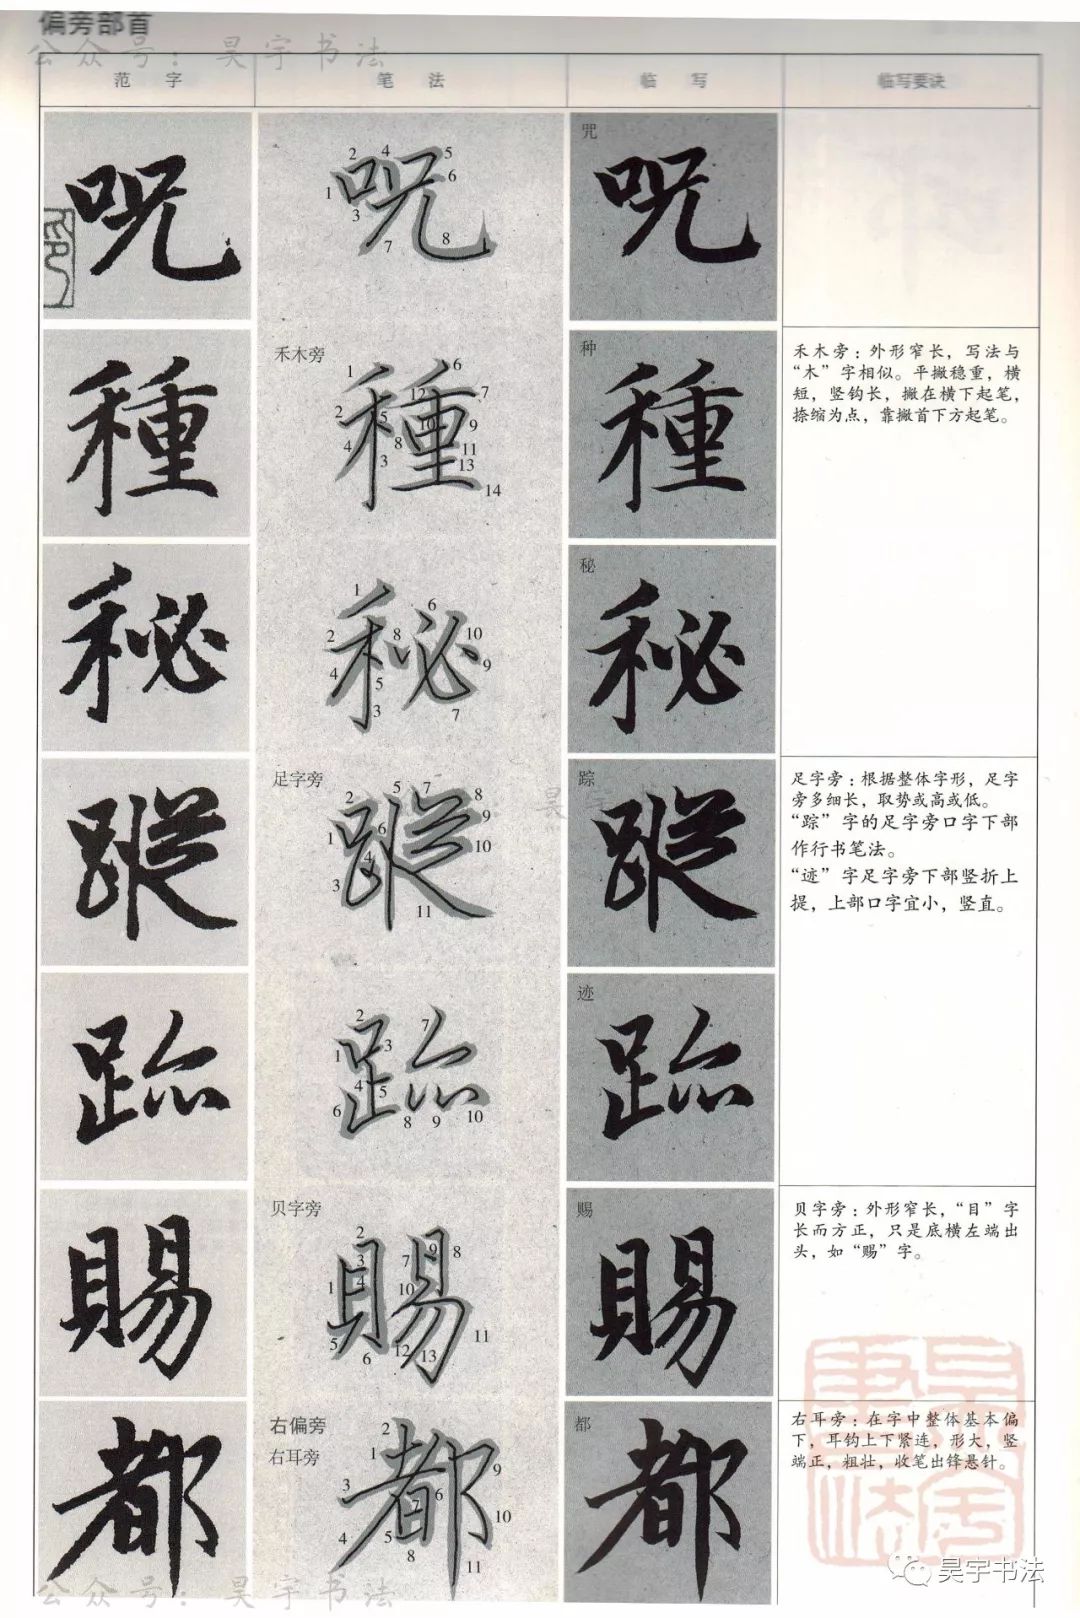 偏旁部首
公众号：昊宇书法
范 字 笔 法 临 写 临写要诀
呪 呪 咒 呪
1 2 3 4 5 6 7 8
種 禾木旁 種 种 種
1 2 3 4 5 6 7 8 9 10 11 12 13 14
禾木旁：外形窄长，写法与
“木”字相似。平撇稳重，横
短，竖钩长，撇在横下起笔，
捺缩为点，靠撇首下方起笔。
秘 秘 秘 秘
1 2 3 4 5 6 7 8 9 10
蹤 足字旁 蹤 踪 蹤
1 2 3 4 5 6 7 8 9 10 11
足字旁：根据整体字形，足字
旁多细长，取势或高或低。
“踪”字的足字旁口字下部
作行书笔法。
“迹”字足字旁下部竖折上
提，上部口字宜小，竖直。
跡 跡 迹 跡
1 2 3 4 5 6 7 8 9 10
賜 贝字旁 賜 赐 賜
1 2 3 4 5 6 7 8 9 10 11 12 13
贝字旁：外形窄长，“目”字
长而方正，只是底横左端出
头，如“赐”字。
都 右偏旁 都 都 都
右耳旁
1 2 3 4 5 6 7 8 9 10 11
右耳旁：在字中整体基本偏
下，耳钩上下紧连，形大，竖
端正，粗壮，收笔出锋悬针。
昊宇书法
公众号：昊宇书法